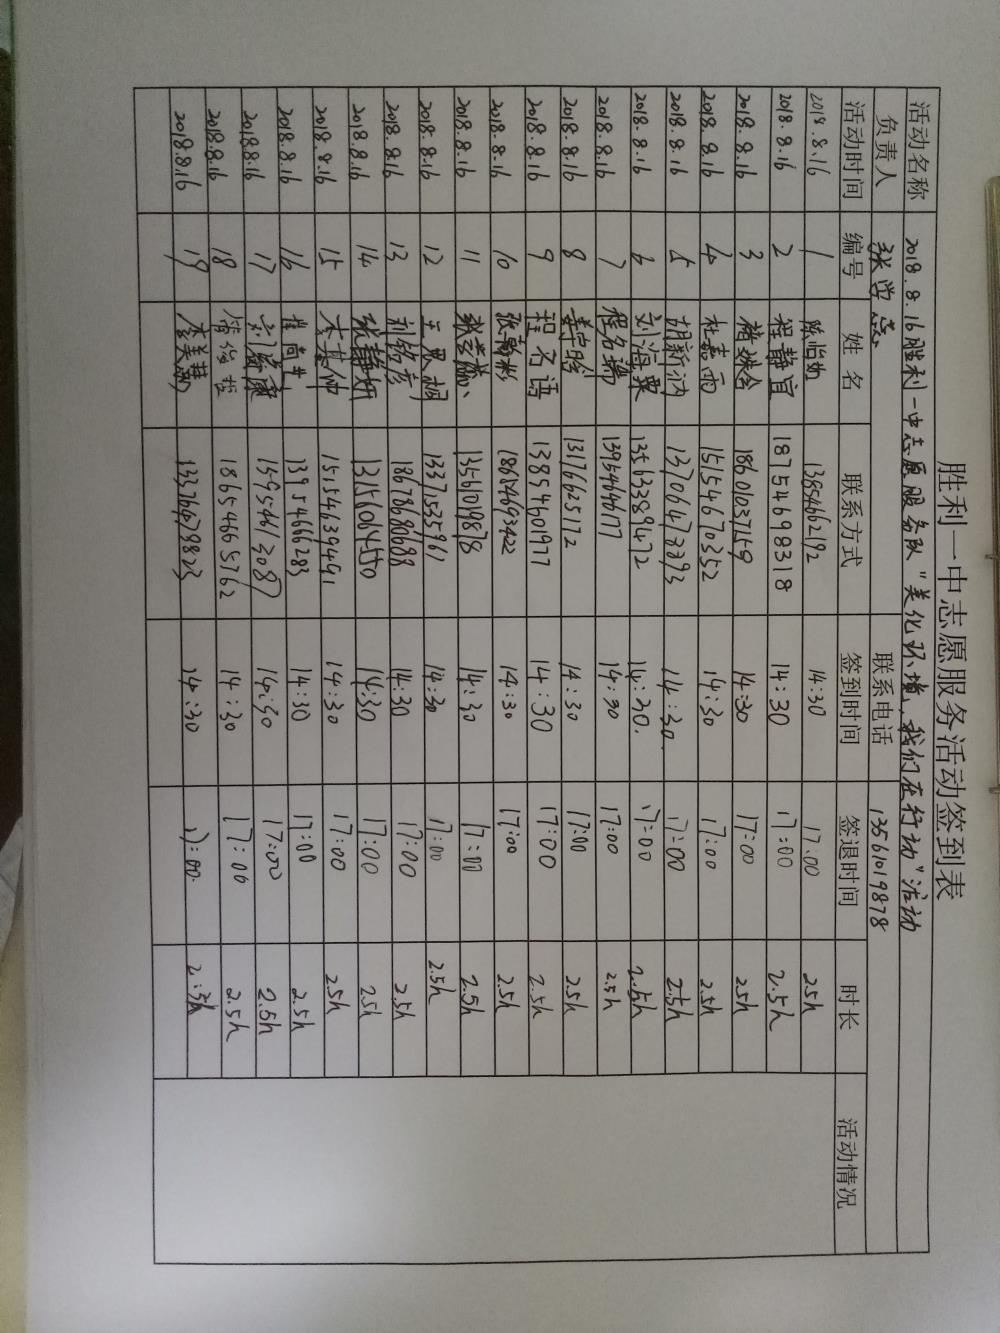 胜利一中志愿服务活动签到表
活动名称 2018.8.16胜利一中志愿服务队"美化环境,我们在行动"活动
负责人 联系电话 13561019878
活动时间 编号 姓名 联系方式 签到时间 签退时间 时长 活动情况
2018.8.16 1 陈怡如 13854662192 14:30 17:00 2.5h
2018.8.16 2 程静宜 18754698318 14:30 17:00 2.5h
2018.8.16 3 18601037159 14:30 17:00 2.5h
2018.8.16 4 杜嘉雨 15154670352 14:30 17:00 2.5h
2018.8.16 5 胡新汭 13706478393 14:30. 17:00 2.5h
2018.8.16 6 刘海粟 13563389472 14:30. 17:00 2.5h
2018.8.16 7 程名瑞 13954646177 14:30 17:00 2.5h
2018.8.16 8 13176625172 14:30 17:00 2.5h
2018.8.16 9 程名语 13854601977 14:30 17:00 2.5h
2018.8.16 10 18654693422 14:30 17:00 2.5h
2018.8.16 11 13561019878 14:30 17:00 2.5h
2018.8.16 12 王思桐 13371525961 14:30 17:00 2.5h
2018.8.16 13 刘铭彦 18678686688 14:30 17:00 2.5h
2018.8.16 14 张静妍 13156064550 14:30 17:00 2.5h
2018.8.16 15 15154639491 14:30 17:00 2.5h
2018.8.16 16 13954666283 14:30 17:00 2.5h
2018.8.16 17 15954613087 14:30 17:00 2.5h
2018.8.16 18 18654665762 14:30 17:00 2.5h
2018.8.16 19 13376479823 14:30 17:00.